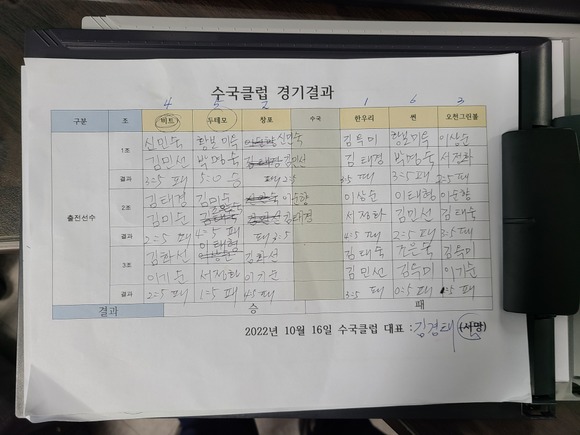 수국클럽 경기결과
4 5 2 1 6 3
구분 조 비트 두테모 창포 수국 한우리 썬 오천그린볼
1조 황보미숙 신민숙 김복미 황보미숙 이상순
김민선 박명숙 김민선 김태경 박명숙 서전하
결과 3=5 패 5=0 승 패 2=5 =5 패 3=5 패 2=5 패
출전선수
2조 김태경 김미순 이순항 이상순 이태형 이순항
김미순 김태경 서정하 김민선 김태숙
결과 2=5 패 4=5 패 패 2=5 4=5 패 2=5 패 3=5 패
이태형
3조 김화선 김화선 김태숙 조은숙 김복미
이기순 서정하 이기순 김민선 김복미 이기순
결과 2=5 패 1=5 패 4=5 패 3=5 패 0=5 패 =5 패
결과 승 패
2022년 10월 16일 수국클럽 대표 : 김경태 (서명)